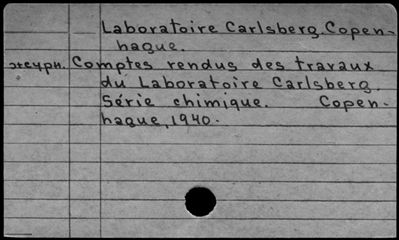 Laboratoire Carlsberg. Copen-
hague.
Comptes rendus des travaux
du Laboratoire Carlsberg.
Série chimique. Copen-
hague, 1940.